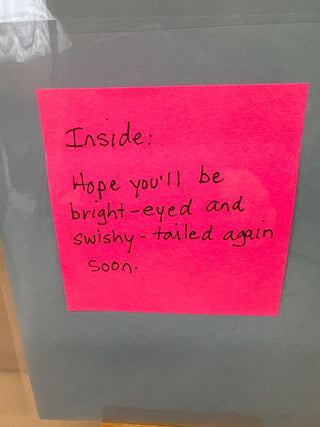 Inside:
Hope you'll be
bright-eyed and
swishy-tailed again
soon.